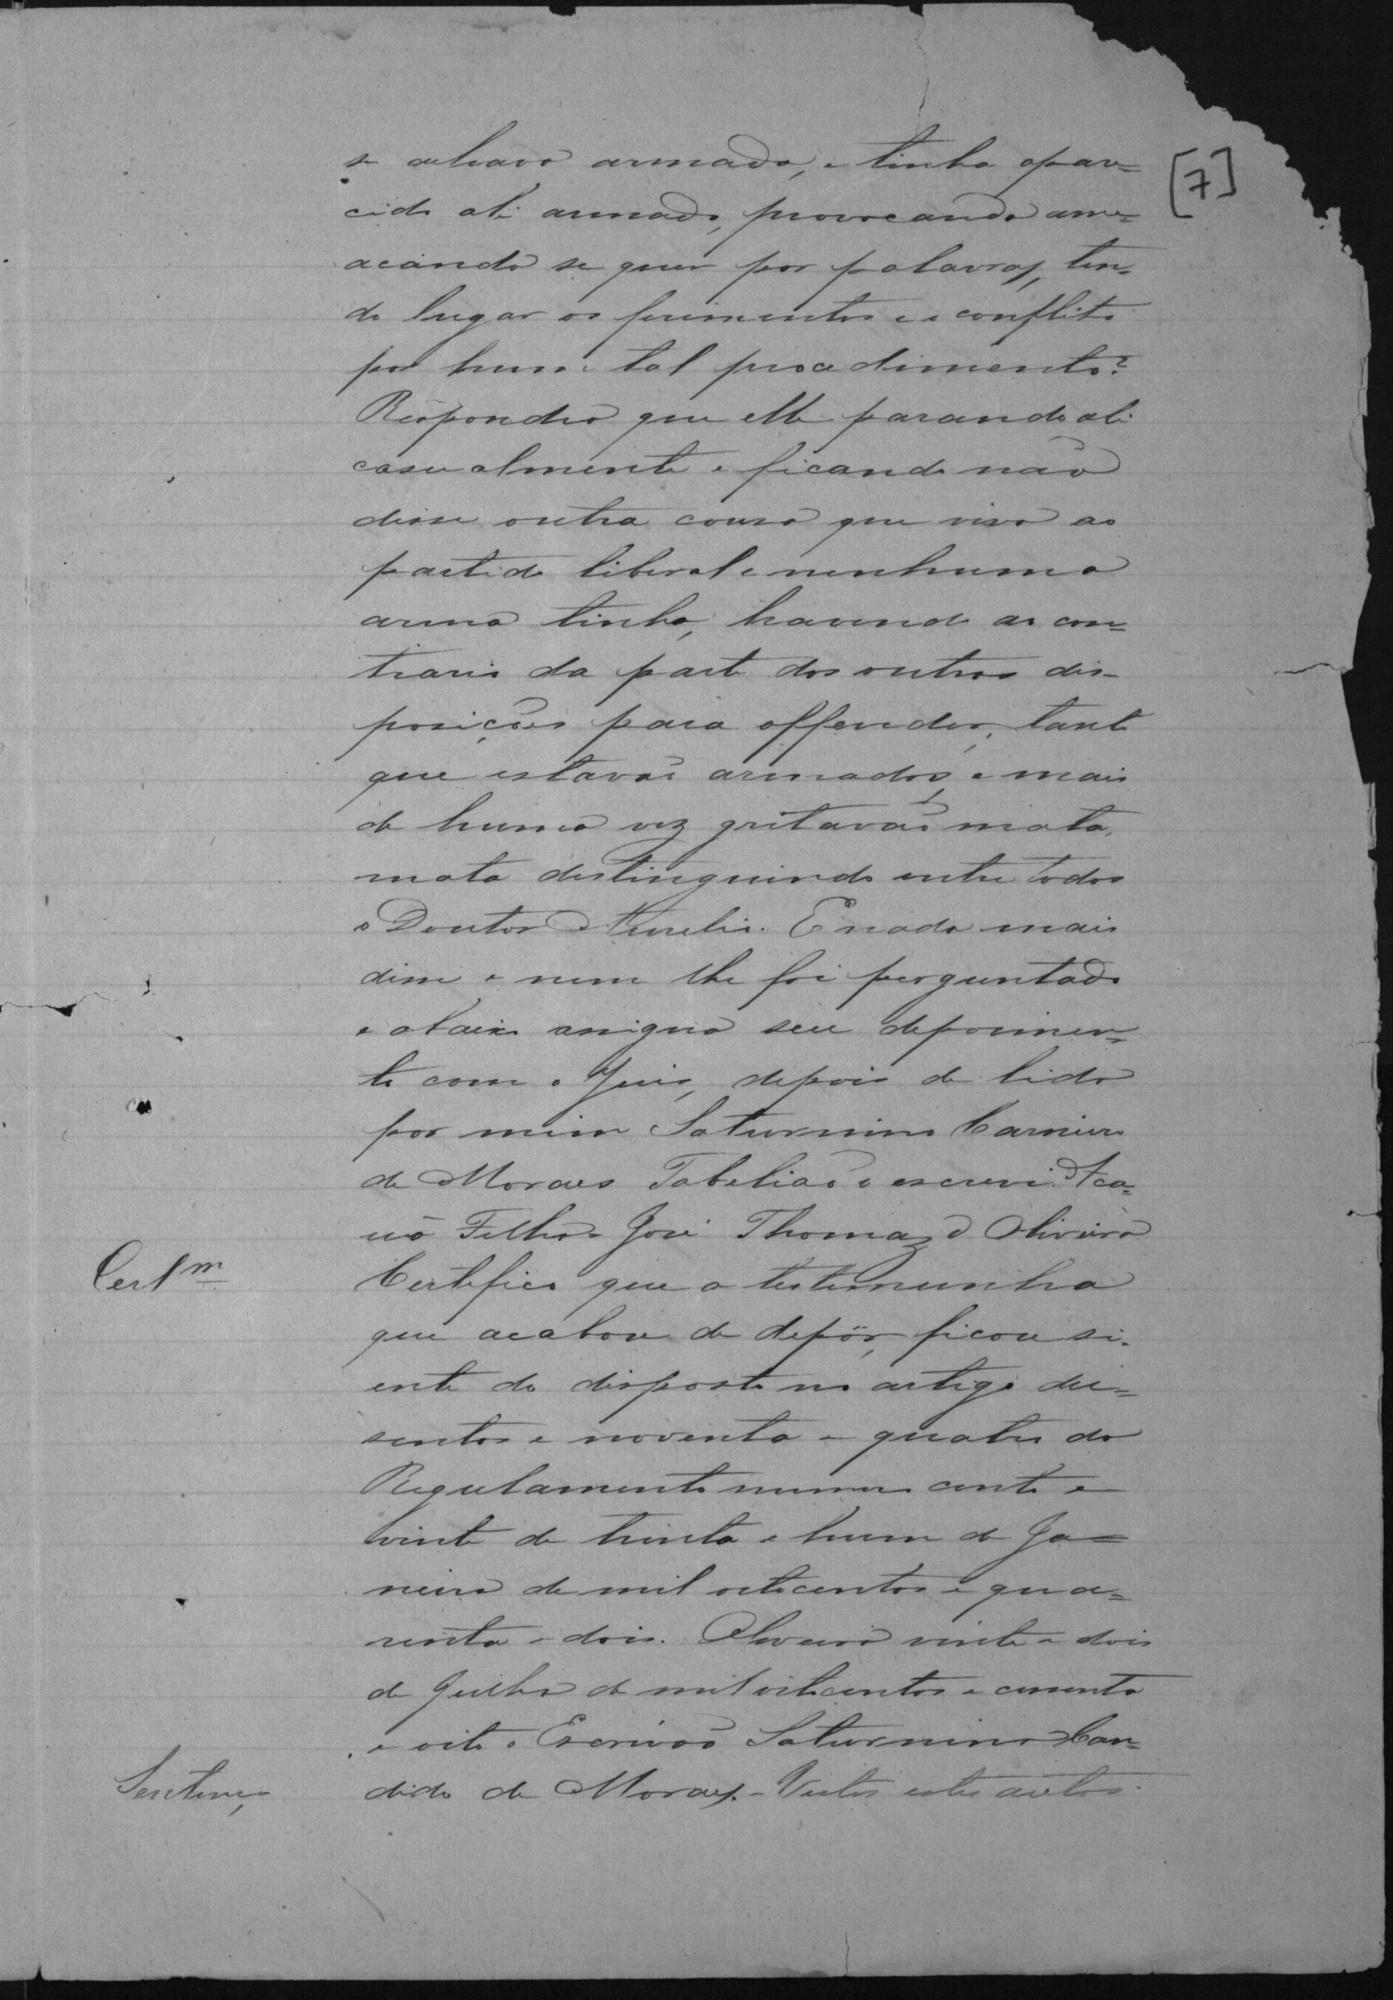 [7]
se achava armado, e tinha apare=
cido ali armado, provocando ame=
açando se quer por palavras, ten=
do lugar os ferimentos e o conflito
por hum tal procedimento?
Respondeo que elle parando ali
casualmente e ficando não
disse outra cousa que viva ao
partido liberal e nenhuma
arma tinha, havendo ao con=
trario da parte dos outros dis=
posições para offender, tanto
que estavão armados, e mais
de huma vez gritavão mata,
mata destinguindo entre todos
o Doutor Aurelio. E nada mais
disse e nem lhe foi perguntado
e abaixo assigna seu depoimen=
to com o Juis, depois de lido
por mim Saturnino Carneiro
de Moraes Tabelião o escrevi. Aca=
uã Filho = José Thomaz d'Oliveira
Certm
Certifico que a testemunha
que acabou de depôr, ficou si=
ente do disposto no artigo du=
sentos e noventa e quatro do
Regulamento numero cento e
vinte de trinta e hum de Ja=
neiro de mil oitocentos e qua=
renta e dois. Oliveira vinte e dois
de Julho de mil oitocentos e cincoenta
e oito o Escrivão Saturnino Can=
Sentença
dido de Moraes. - Vistos estes autos.